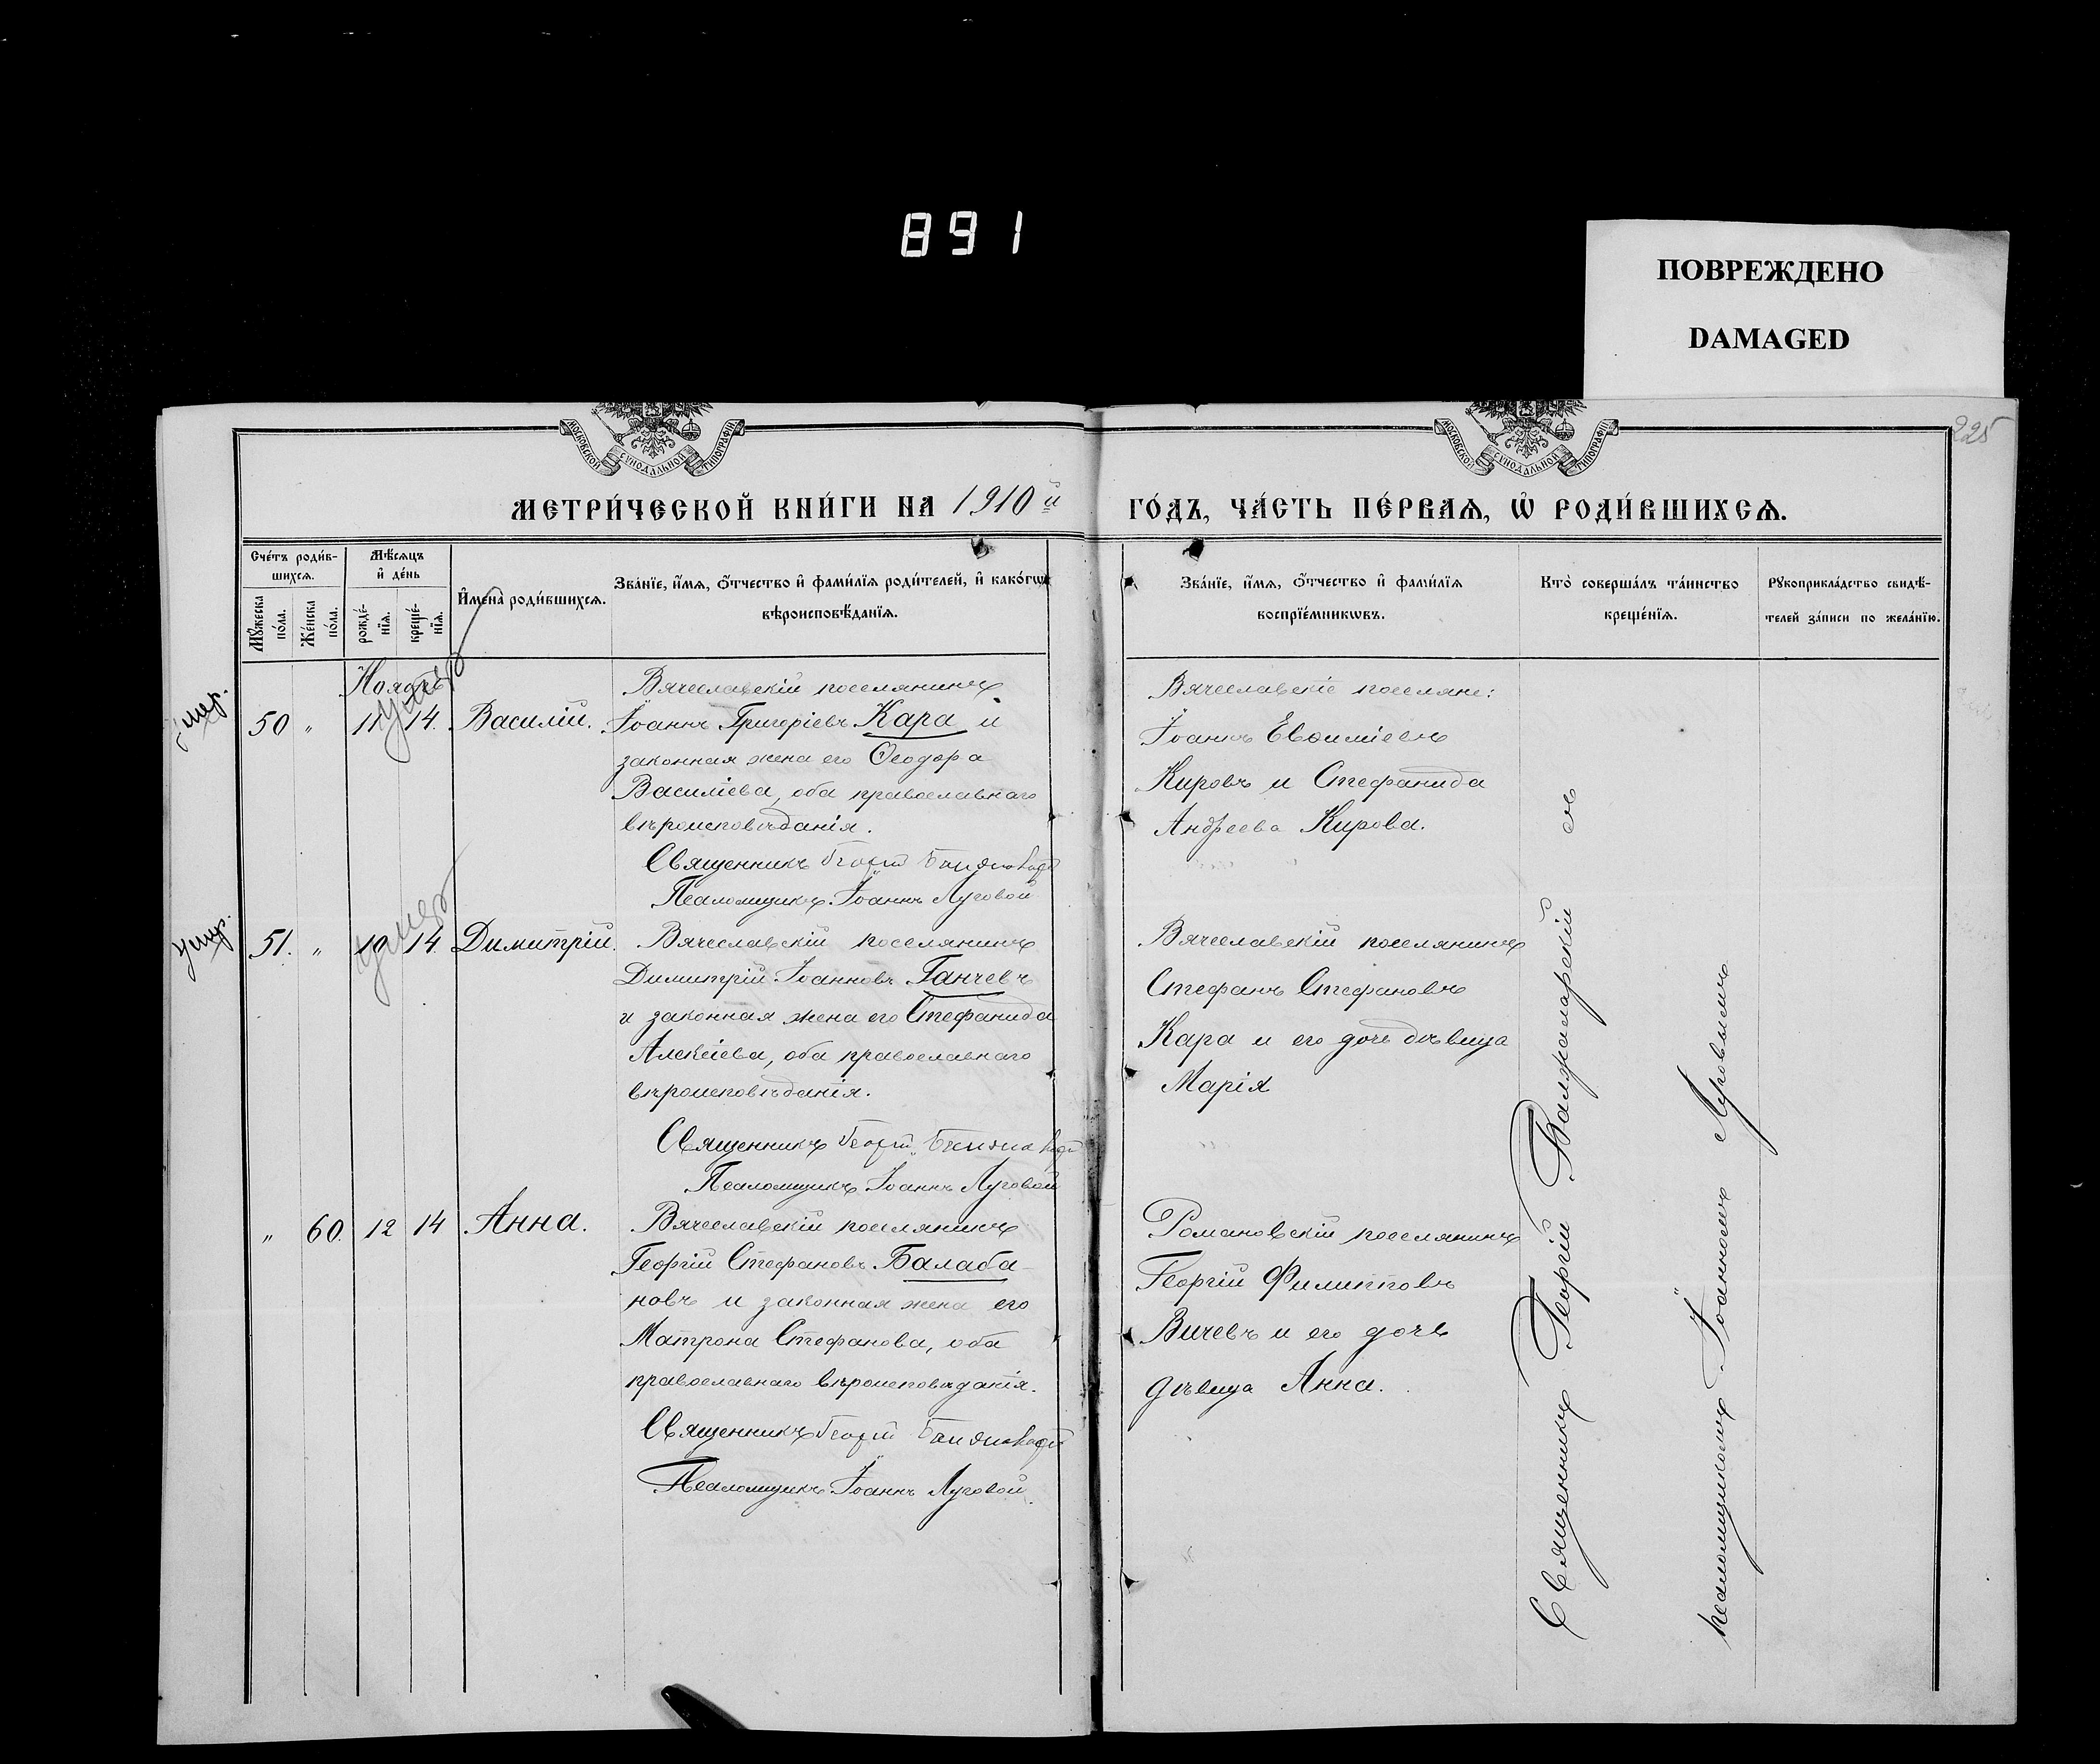 891
ПОВРЕЖДЕНО
DAMAGED
225
МОСКОВСКОЙ СѴНОДАЛЬНОЙ ТИПОГРАФІИ
МОСКОВСКОЙ СѴНОДАЛЬНОЙ ТИПОГРАФІИ
МЕТРИ́ЧЕСКОЙ КНИ́ГИ НА 1910й
ГО́ДЪ, ЧА́СТЬ ПЕ́РВАѦ, Ѡ҆ РОДИ́ВШИХСѦ.
Сче́тъ роди́в-
шихсѧ.
Мꙋ́жеска по́ла.
Же́нска по́ла.
Мѣ́сѧцъ
и҆ де́нь
рожде́-нїѧ.
креще́-нїѧ.
И҆мена̀ роди́вшихсѧ.
Зва́нїе, и҆́мѧ, ѻ҆́тчество и҆ фами́лїѧ роди́телей, и҆ како́гѡ
вѣроисповѣ́данїѧ.
Зва́нїе, и҆́мѧ, ѻ҆́тчество и҆ фами́лїѧ
воспрїе́мникѡвъ.
Кто̀ соверша́лъ та́инство
креще́нїѧ.
Рꙋкоприкла́дство свидѣ́-
телей за́писи по жела́нїю.
Ноябрь
умер.
50 „ 11 14. Василій.
Вячеславскій поселянинъ
Іоаннъ Григоріевъ Кара и
законная жена его Ѳеодора
Василіева, оба православнаго
вѣроисповѣданія.
Священникъ Георгій
Псаломщикъ Іоаннъ Луговой
Вячеславскіе поселяне:
Іоаннъ Евѳиміевъ
Кировъ и Стефанида
Андреева Кирова.
умер.
умер
51. „ 10 14. Димитрій.
Вячеславскій поселянинъ
Димитрій Іоанновъ Ганчевъ
и законная жена его Стефанида
Алексіева, оба православнаго
вѣроисповѣданія.
Священникъ Георгій
Псаломщикъ Іоаннъ Луговой
Вячеславскій поселянинъ
Стефанъ Стефановъ
Кара и его дочь дѣвица
Марія
„ 60. 12 14 Анна.
Вячеславскій поселянинъ
Георгій Стефановъ Балаба-
новъ и законная жена его
Матрона Стефанова, оба
православнаго вѣроисповѣданія.
Священникъ Георгій
Псаломщикъ Іоаннъ Луговой.
Романовскій поселянинъ
Георгій Филипповъ
Вичевъ и его дочь
дѣвица Анна.
Священникъ Георгій съ
псаломщикомъ Іоанномъ Луговымъ